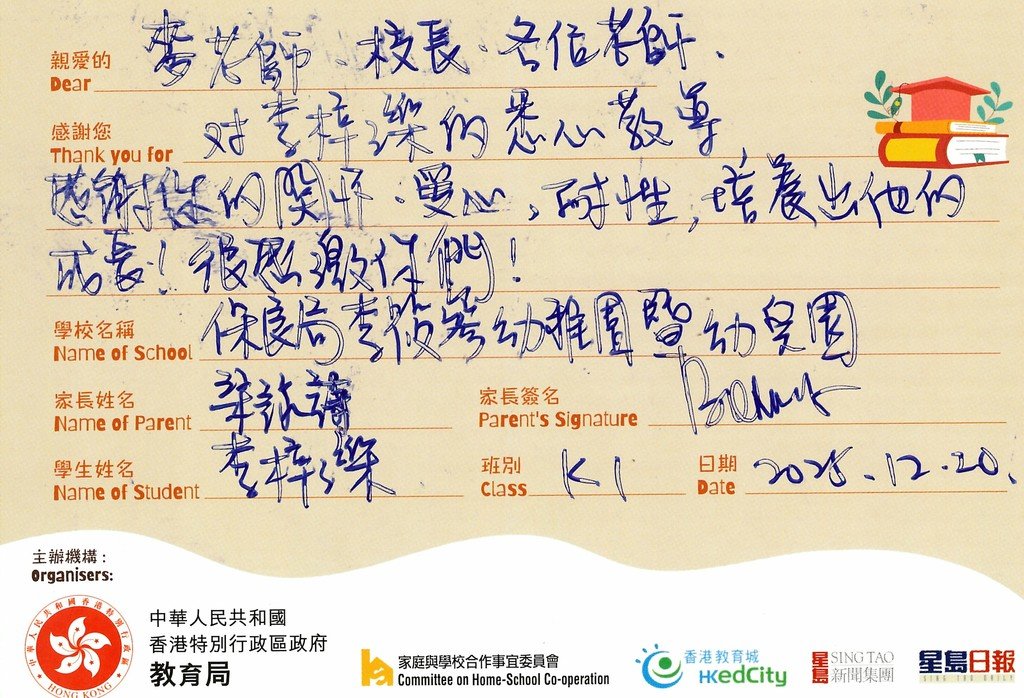 親愛的 麥老師、校長、各位老師、
Dear
感謝您 对李梓濼的悉心教導
Thank you for
感謝你的關怀、愛心,耐性,培養出他的
成長!很感激你們!
學校名稱 保良局李筱笭幼稚園暨幼兒園
Name of School
家長姓名 梁詠詩 家長簽名
Name of Parent Parent's Signature
學生姓名 李梓濼 班別 K1 日期 2025.12.20.
Name of Student Class Date
主辦機構:
Organisers:
中華人民共和國
香港特別行政區政府
教育局
中華人民共和國香港特別行政區
HONG KONG
家庭與學校合作事宜委員會
Committee on Home-School Co-operation
香港教育城
HKedCity
星島 SING TAO
新聞集團
星島日報
SING TAO DAILY